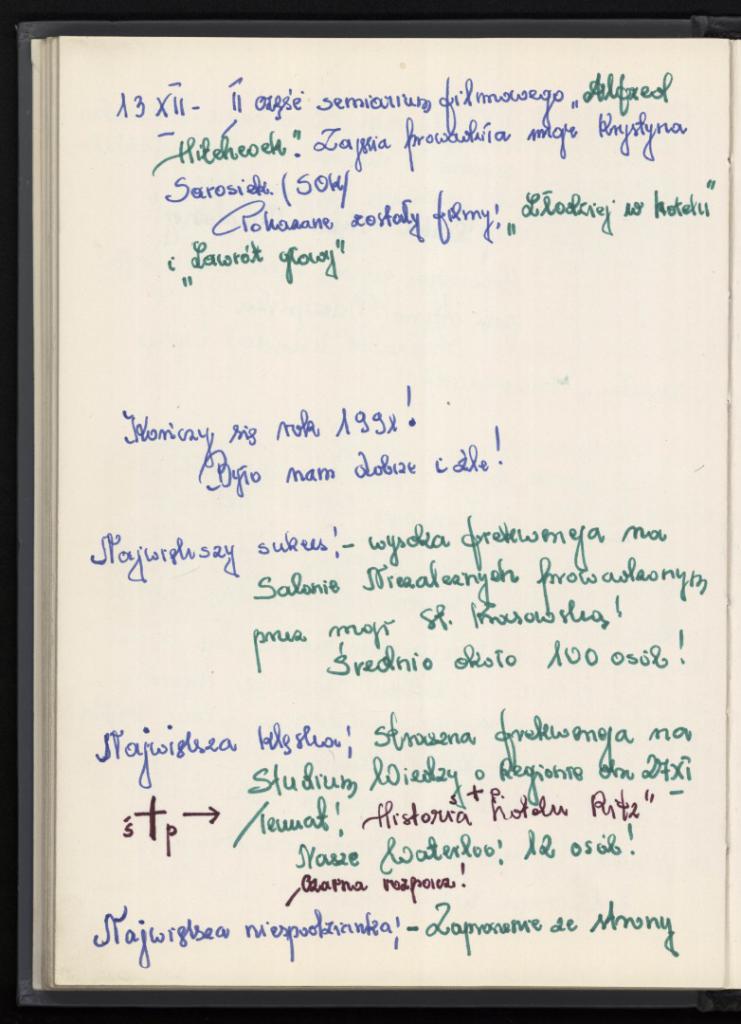 13 XII - II część semiarium filmowego "Alfred
Hitchcock". Zajęcia prowadziła mgr Krystyna
Sarosiek. (SOK)
Pokazane zostały filmy: "Złodziej w hotelu"
i "Zawrót głowy"
Kończy się rok 199x!
Było nam dobrze i źle!
Największy sukces: - wysoka frekwencja na
Salonie Niezależnych prowadzonym
przez mgr St. Krasowską!
Średnio około 100 osób!
Największa klęska: straszna frekwencja na
Studium Wiedzy o Regionie dn 27 XI
ś+p → Temat: Historia ś+p. hotelu Ritz"
Nasze Waterloo: 12 osób!
Czarna rozpacz!
Największa niespodzianka: - Zaproszenie ze strony